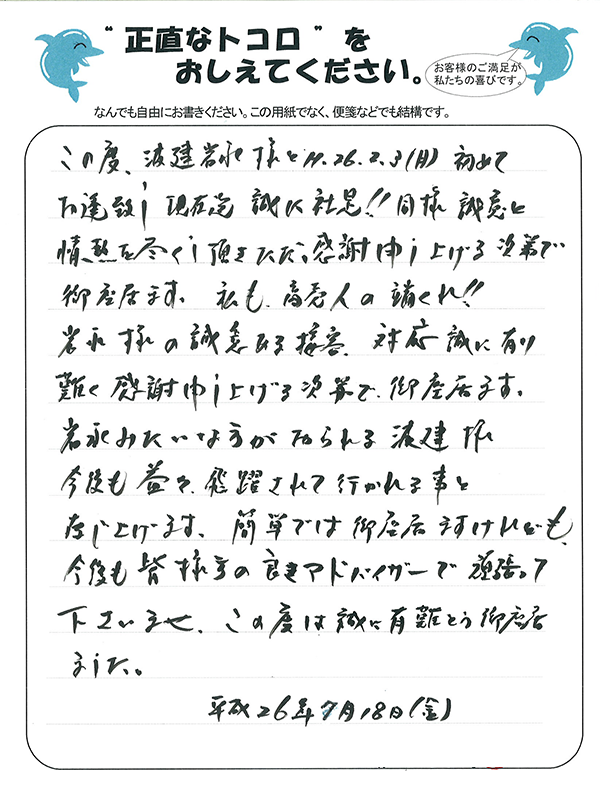 “正直なトコロ”を
おしえてください。
お客様のご満足が
私たちの喜びです。
なんでも自由にお書きください。この用紙でなく、便箋などでも結構です。
この度、波建岩永様とH.26.2.3(月)初めて
お逢致し現在迄 誠に 同様 誠意と
情熱を尽くし頂きただ感謝申し上げる次第で
御座居ます。私も、商売人の端くれ!!
岩永様の誠意ある接客、対応誠に有り
難く感謝申し上げる次第で、御座居ます。
岩永みたいな方がおられる波建様
今後も益々、飛躍されて行かれる事と
存じ上げます。簡単では御座居ますけれども、
今後も皆様方の良きアドバイザーで頑張って
下さいませ、この度は誠に有難とう御座居
ました。
平成26年7月18日(金)